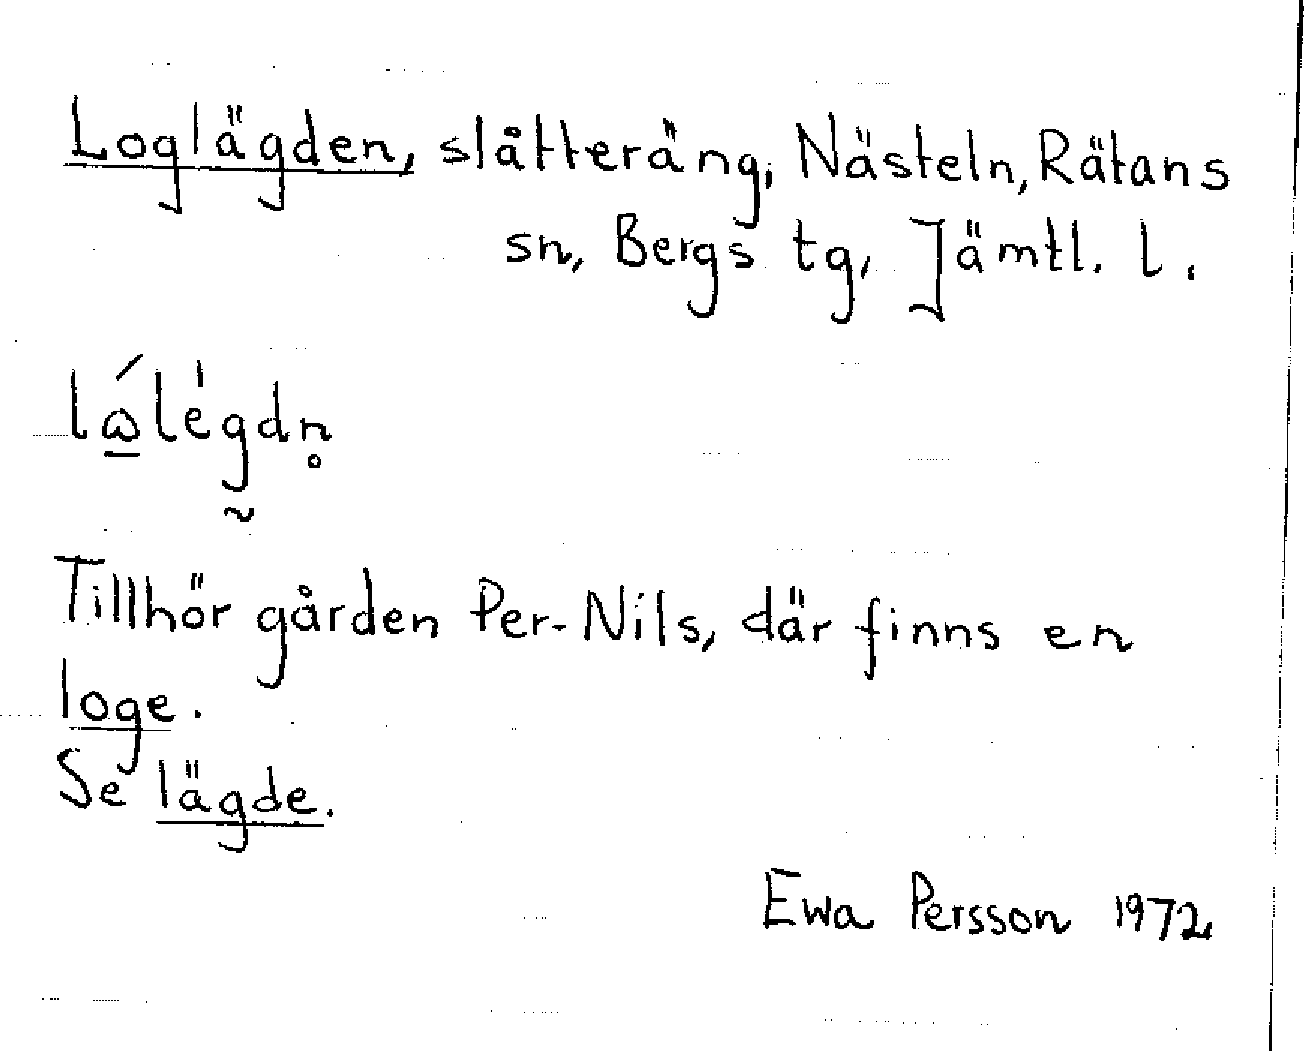 Loglägden, slåtteräng, Nästeln, Rätans
sn, Bergs tg, Jämtl. l.
Tillhör gården Per-Nils, där finns en
loge.
Se lägde.
Ewa Persson 1972